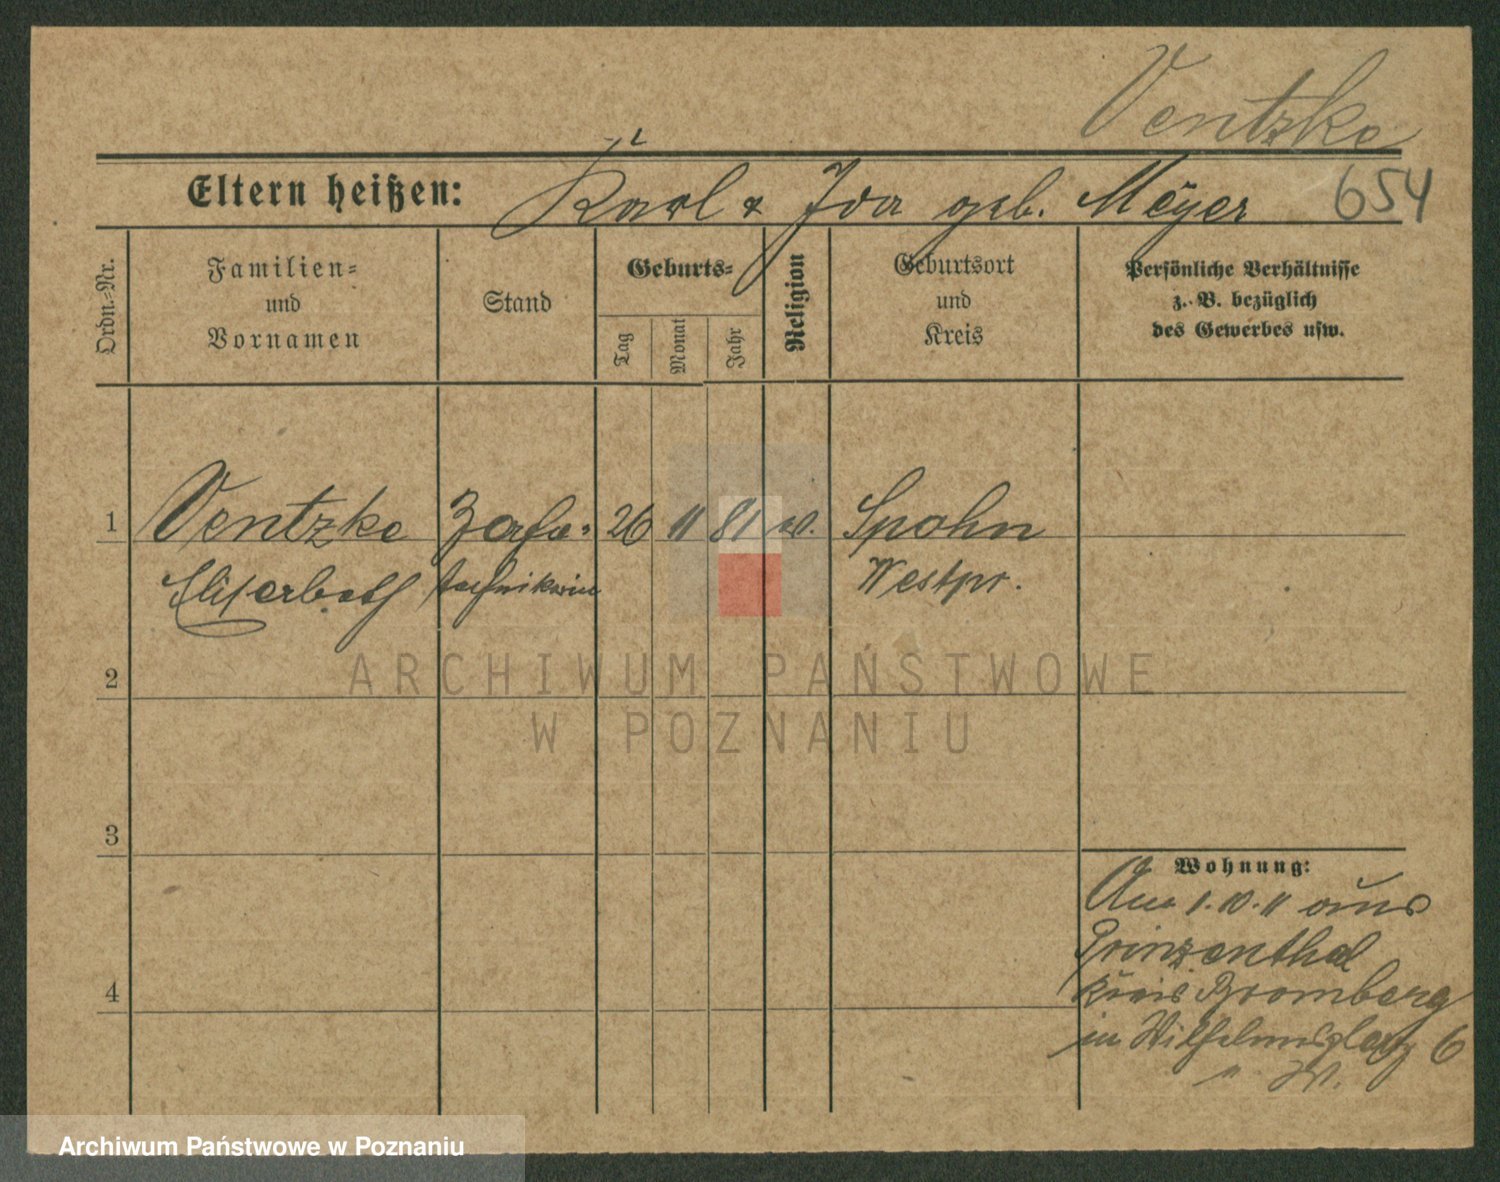 Ventzke
654
Eltern heißen: Karl & Ida geb. Meyer
Ordn.-Nr.
Familien-
und
Vornamen
Stand
Geburts-
Tag
Monat
Jahr
Religion
Geburtsort
und
Kreis
Persönliche Verhältnisse
z. B. bezüglich
des Gewerbes usw.
1 Ventzke Zahn- 26 11 81 Spohn
Elisabeth technikerin Westpr.
2
3
4
Wohnung:
Am 1.10.11 aus
Prinzenthal
Kreis Bromberg
in Wilhelmsplatz 6
ARCHIWUM PAŃSTWOWE
W POZNANIU
Archiwum Państwowe w Poznaniu